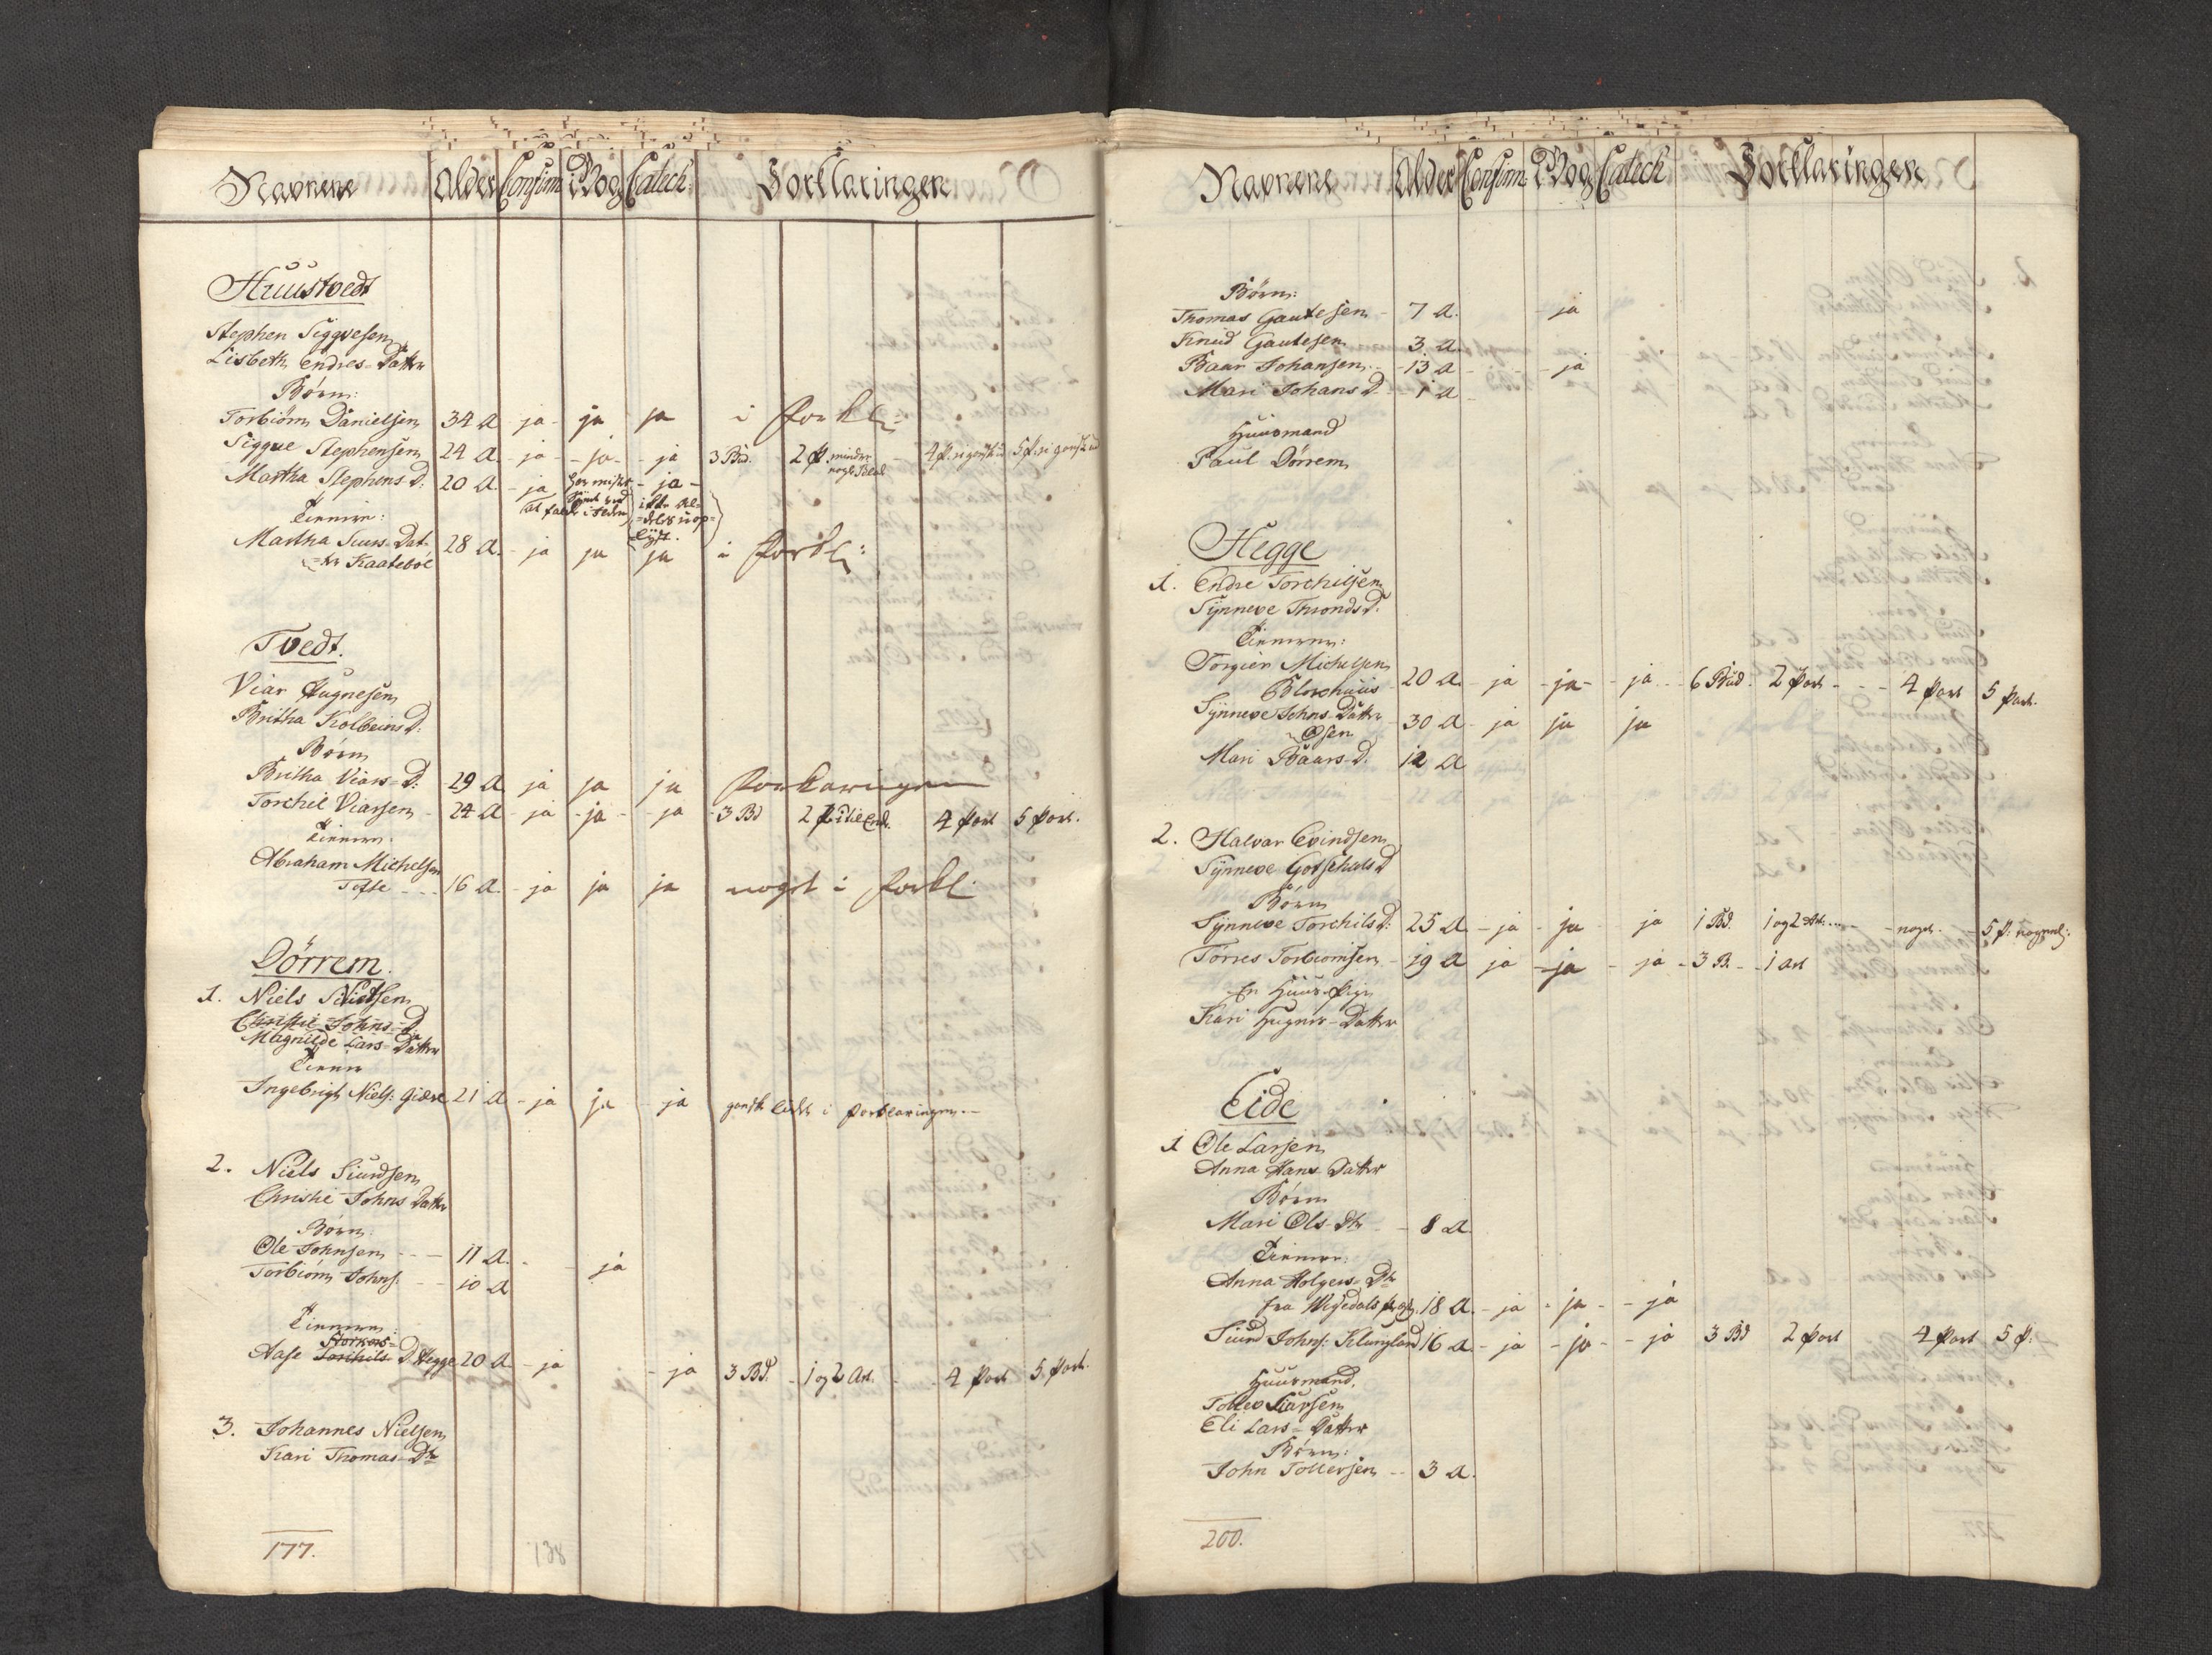 Navnene Alder Confirm i Bog Catech: Forklaringen
Huustvedt
Stephen Siggvesen
Lisbeth Endres-Datter
Børn:
Torbiørn Danielsen 34 A - ja - ja ja i forkl:
Siggve Stephensen 24 A - ja - ja - - ja 3 Bud. 2 P. minder nogle 4 P. 5 P.
Martha Stephens D: 20 A - ja har mistet - ja -
Tienere:
Martha Siurs-Dat- 28 A - ja ja ja i forkl:
=ter Kaatebøe
Tvedt.
Viar Hugnesen
Britha Kolbeins D:
Børn
Britha Viars-D: 29 A ja ja ja forklaringen
Torchil Viarsen - 24 A - ja - ja - - ja - 3 Bd 2 P. til End. 4 Part 5 Part.
Tienere:
Abraham Michelsen
Tofte - - - 16 A - ja ja ja noget i forkl.
Dörrem.
1. Niels
Christie Johns-D
Magnilde Lars-Datter
Tiener
Ingebrigt Niels: Gidere 21 A - ja ja - ja gandske lidet i forklaringen -
2. Niels Siurdsen
Christie Johns Datter
Børn.
Ole Johnsen - - - 11 A. - - ja
Torbiørn Johns. - - 10 A
Tienere:
Storkors=
Aase Torchils D. Hegge 20 A - ja - ja 3 Bd. - 1 og 2 Art. - - 4 Part 5. Part.
3. Johannes Nielsen
Kari Thomas-Dtr
177. 138
Navnene Alder Confirm i Bog Catech Forklaringen
Børn:
Thomas Gautesen - 7 A. - ja
Knud Gautesen 3 A.
Baar Johansen - - 13 A - - - ja
Mari Johans D - - 1 A
Huusmand
Paul Dörrem
Hegge
1. Endre Torchilsen
Synneve Thronds D.
Tienere:
Torgier Michelsen
Blochuus - 20 A. - ja - ja - - ja - - 6 Bud. 2 Part - - - 4 Part 5 Part.
Synneve Johns-Datter - 30 A - ja ja ja
Osen
Mari Baars-D. 12 A
2. Halvar Evindsen
Synneve Gotschals D
Børn
Synneve Torchils D: 25 A - ja - ja - ja 1 Bd. 1 og 2 Art. - - - noget. - 5 P:
Torres Torbiornsen - 19 A ja - ja - ja - 3 B. - - 1 Art
En Huus-Pige
Kari Hugnes-Datter
Eide
1 Ole Larsen
Anna Hans Datter
Børn
Mari Ols-Dtr - - 8 A
Tienere:
Anna Holgers-Dtr
fra 18 A. - ja - ja - - ja
Siurd Johns: Klungland 16 A - ja - ja - - ja 3 Bd 2 Part 4 Part 5 P:
Huusmand.
Tollev Larsen
Eli Lars-Datter
Børn:
John Tollevsen - - 3 A.
200.